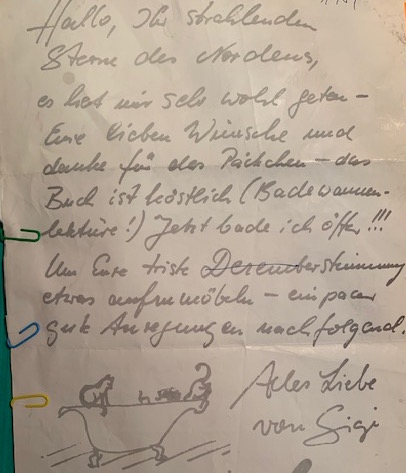 Hallo, Ihr strahlenden
Sterne des Nordens,
es hat mir sehr wohl getan –
Eure lieben Wünsche und
danke für das Päckchen – das
Buch ist köstlich (Badewannen-
lektüre!) Jetzt bade ich öfter!!!
Um Eure triste Dezemberstimmung
etwas aufzumöbeln – ein paar
gute Anregungen nachfolgend.
Alles Liebe
von Gigi